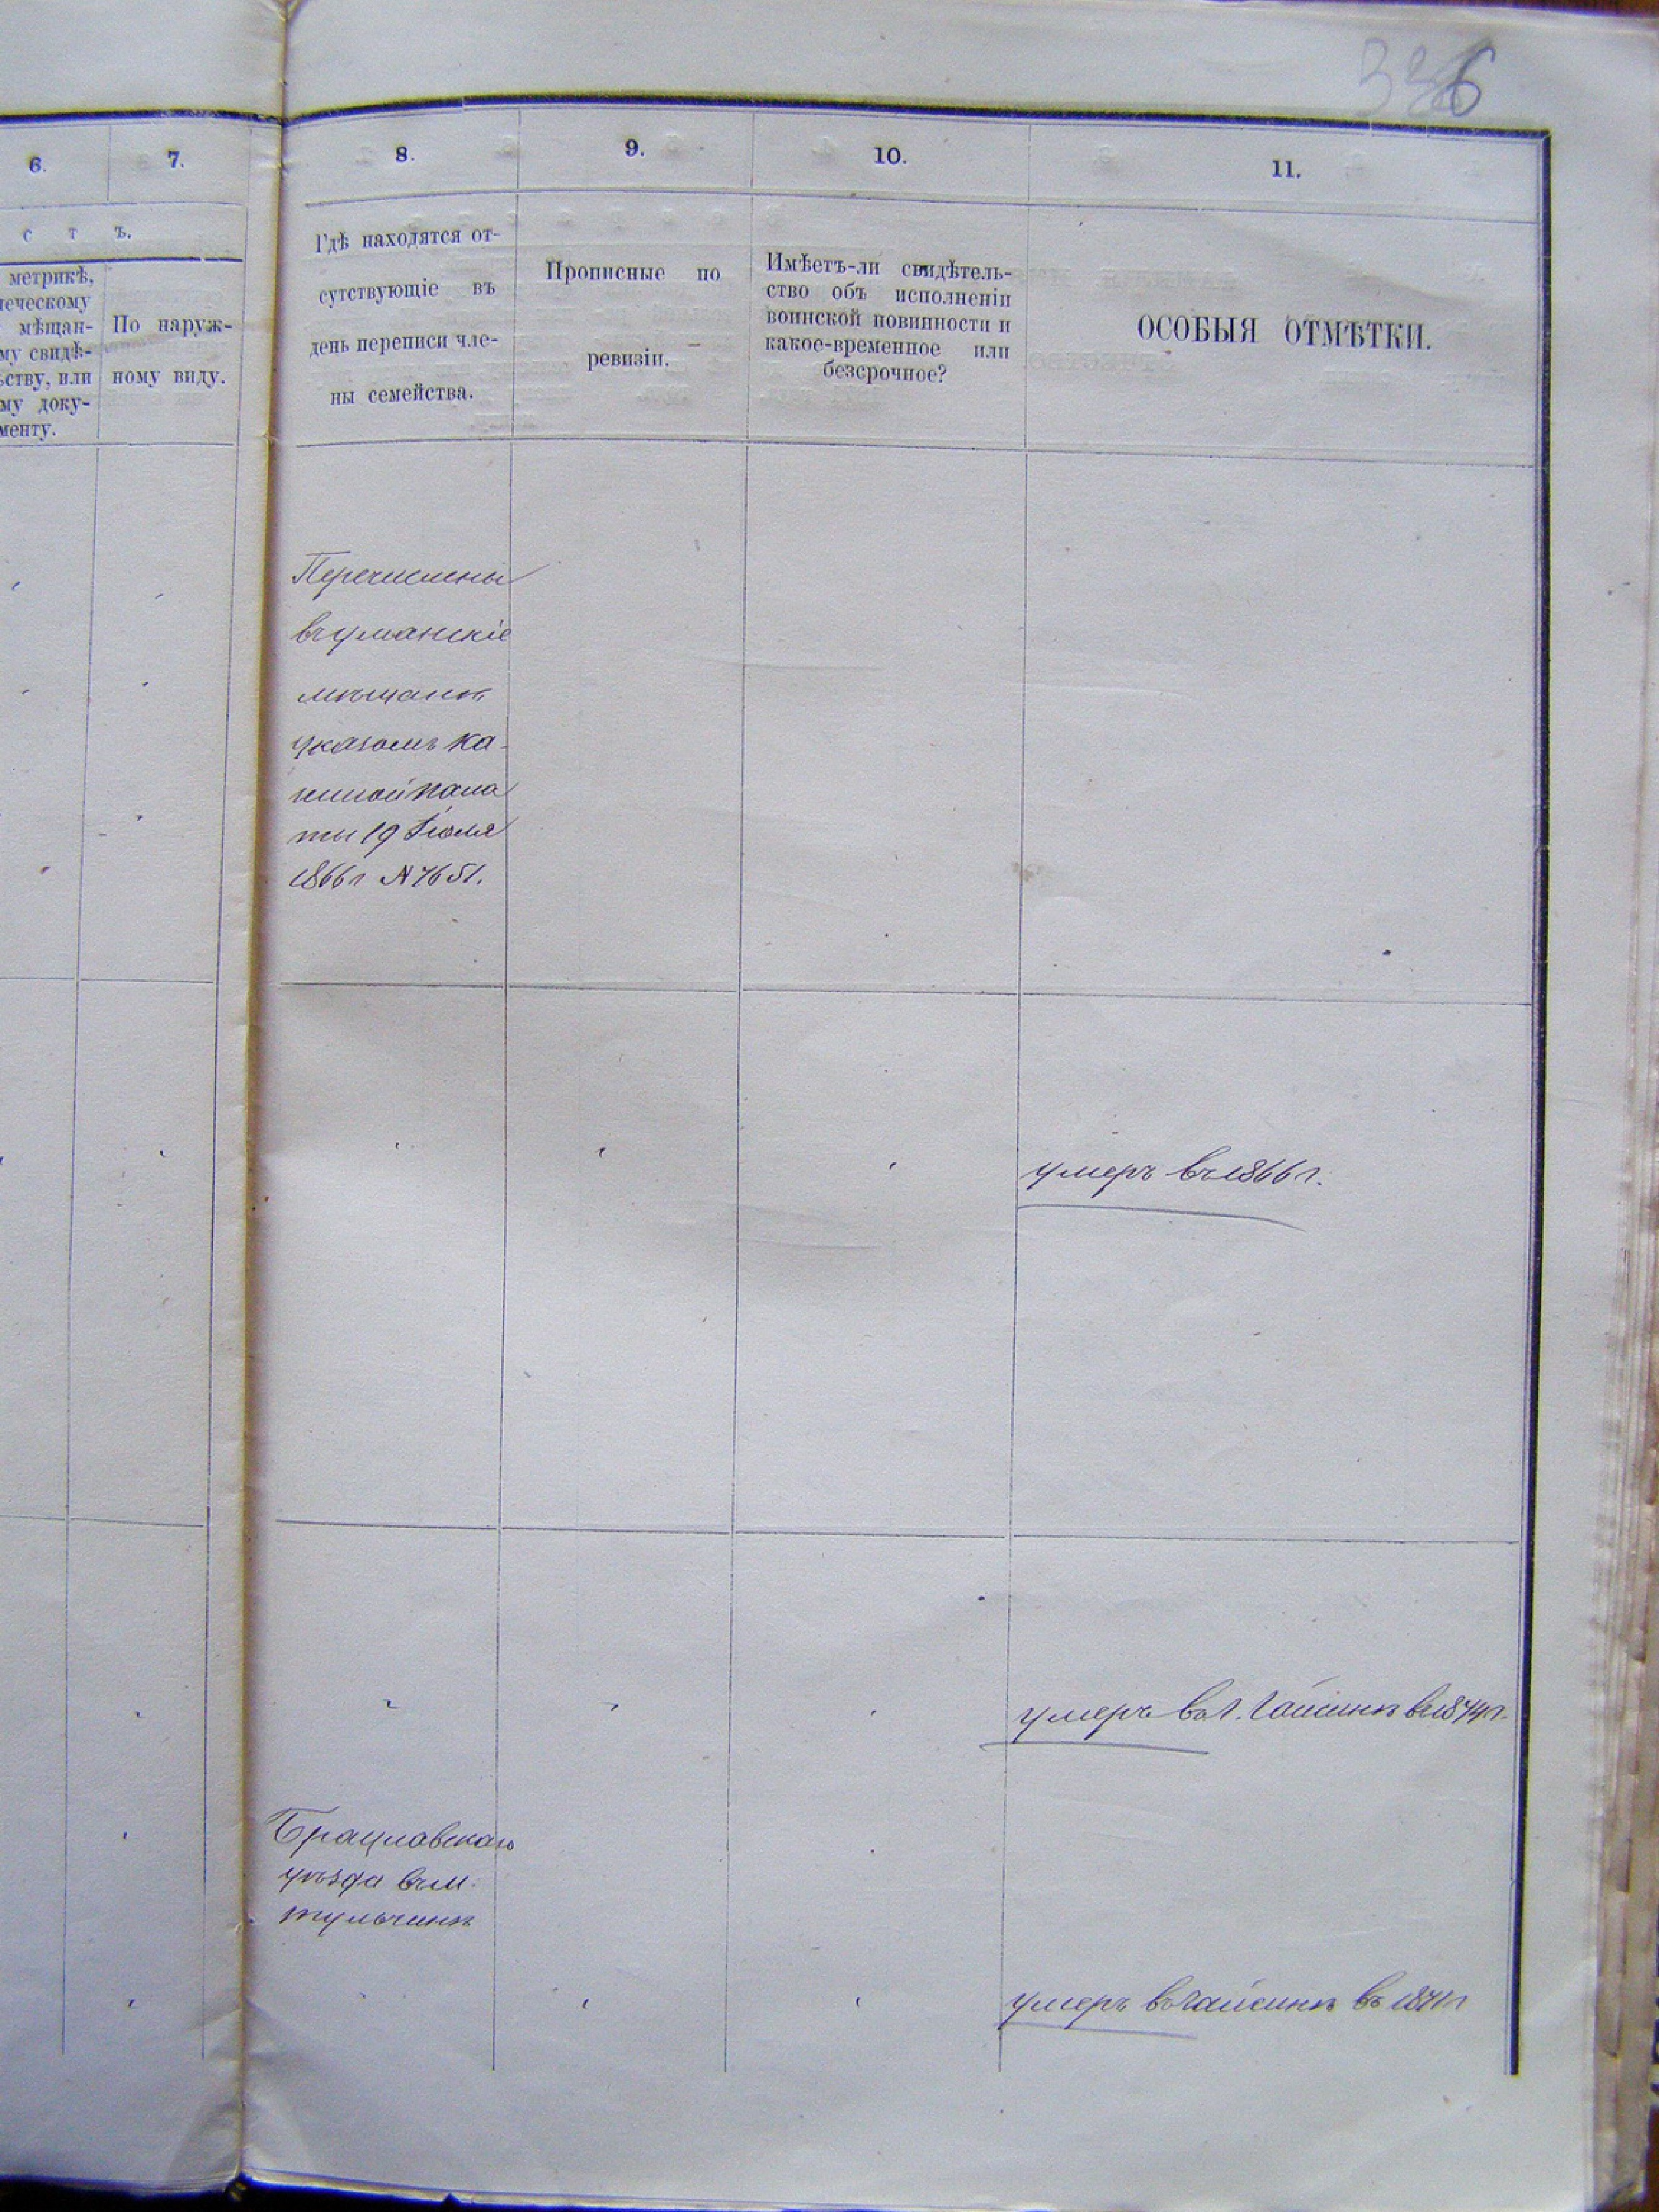 6.
7.
8.
9.
10.
11.
с т ъ.
метрикѣ,
ческому
мѣщан-
му свидѣ-
ьству, или
му доку-
менту.
По наруж-
ному виду.
Гдѣ находятся от-
сутствующіе въ
день переписи чле-
ны семейства.
Прописные по
ревизіи.
Имѣетъ-ли свидѣтель-
ство объ исполненіи
воинской повинности и
какое-временное или
безсрочное?
ОСОБЫЯ ОТМѢТКИ.
Перечислены
въ уманскіе
мѣщане
указомъ Ка-
зенной пала
ты 19 Іюля
1866 г № 7651.
умеръ въ 1866 г.
умеръ въ г. Гайсинѣ въ 1874 г.
Брацлавскаго
уѣзда въ м.
тульчинѣ
умеръ въ Гайсинѣ въ 1871 г